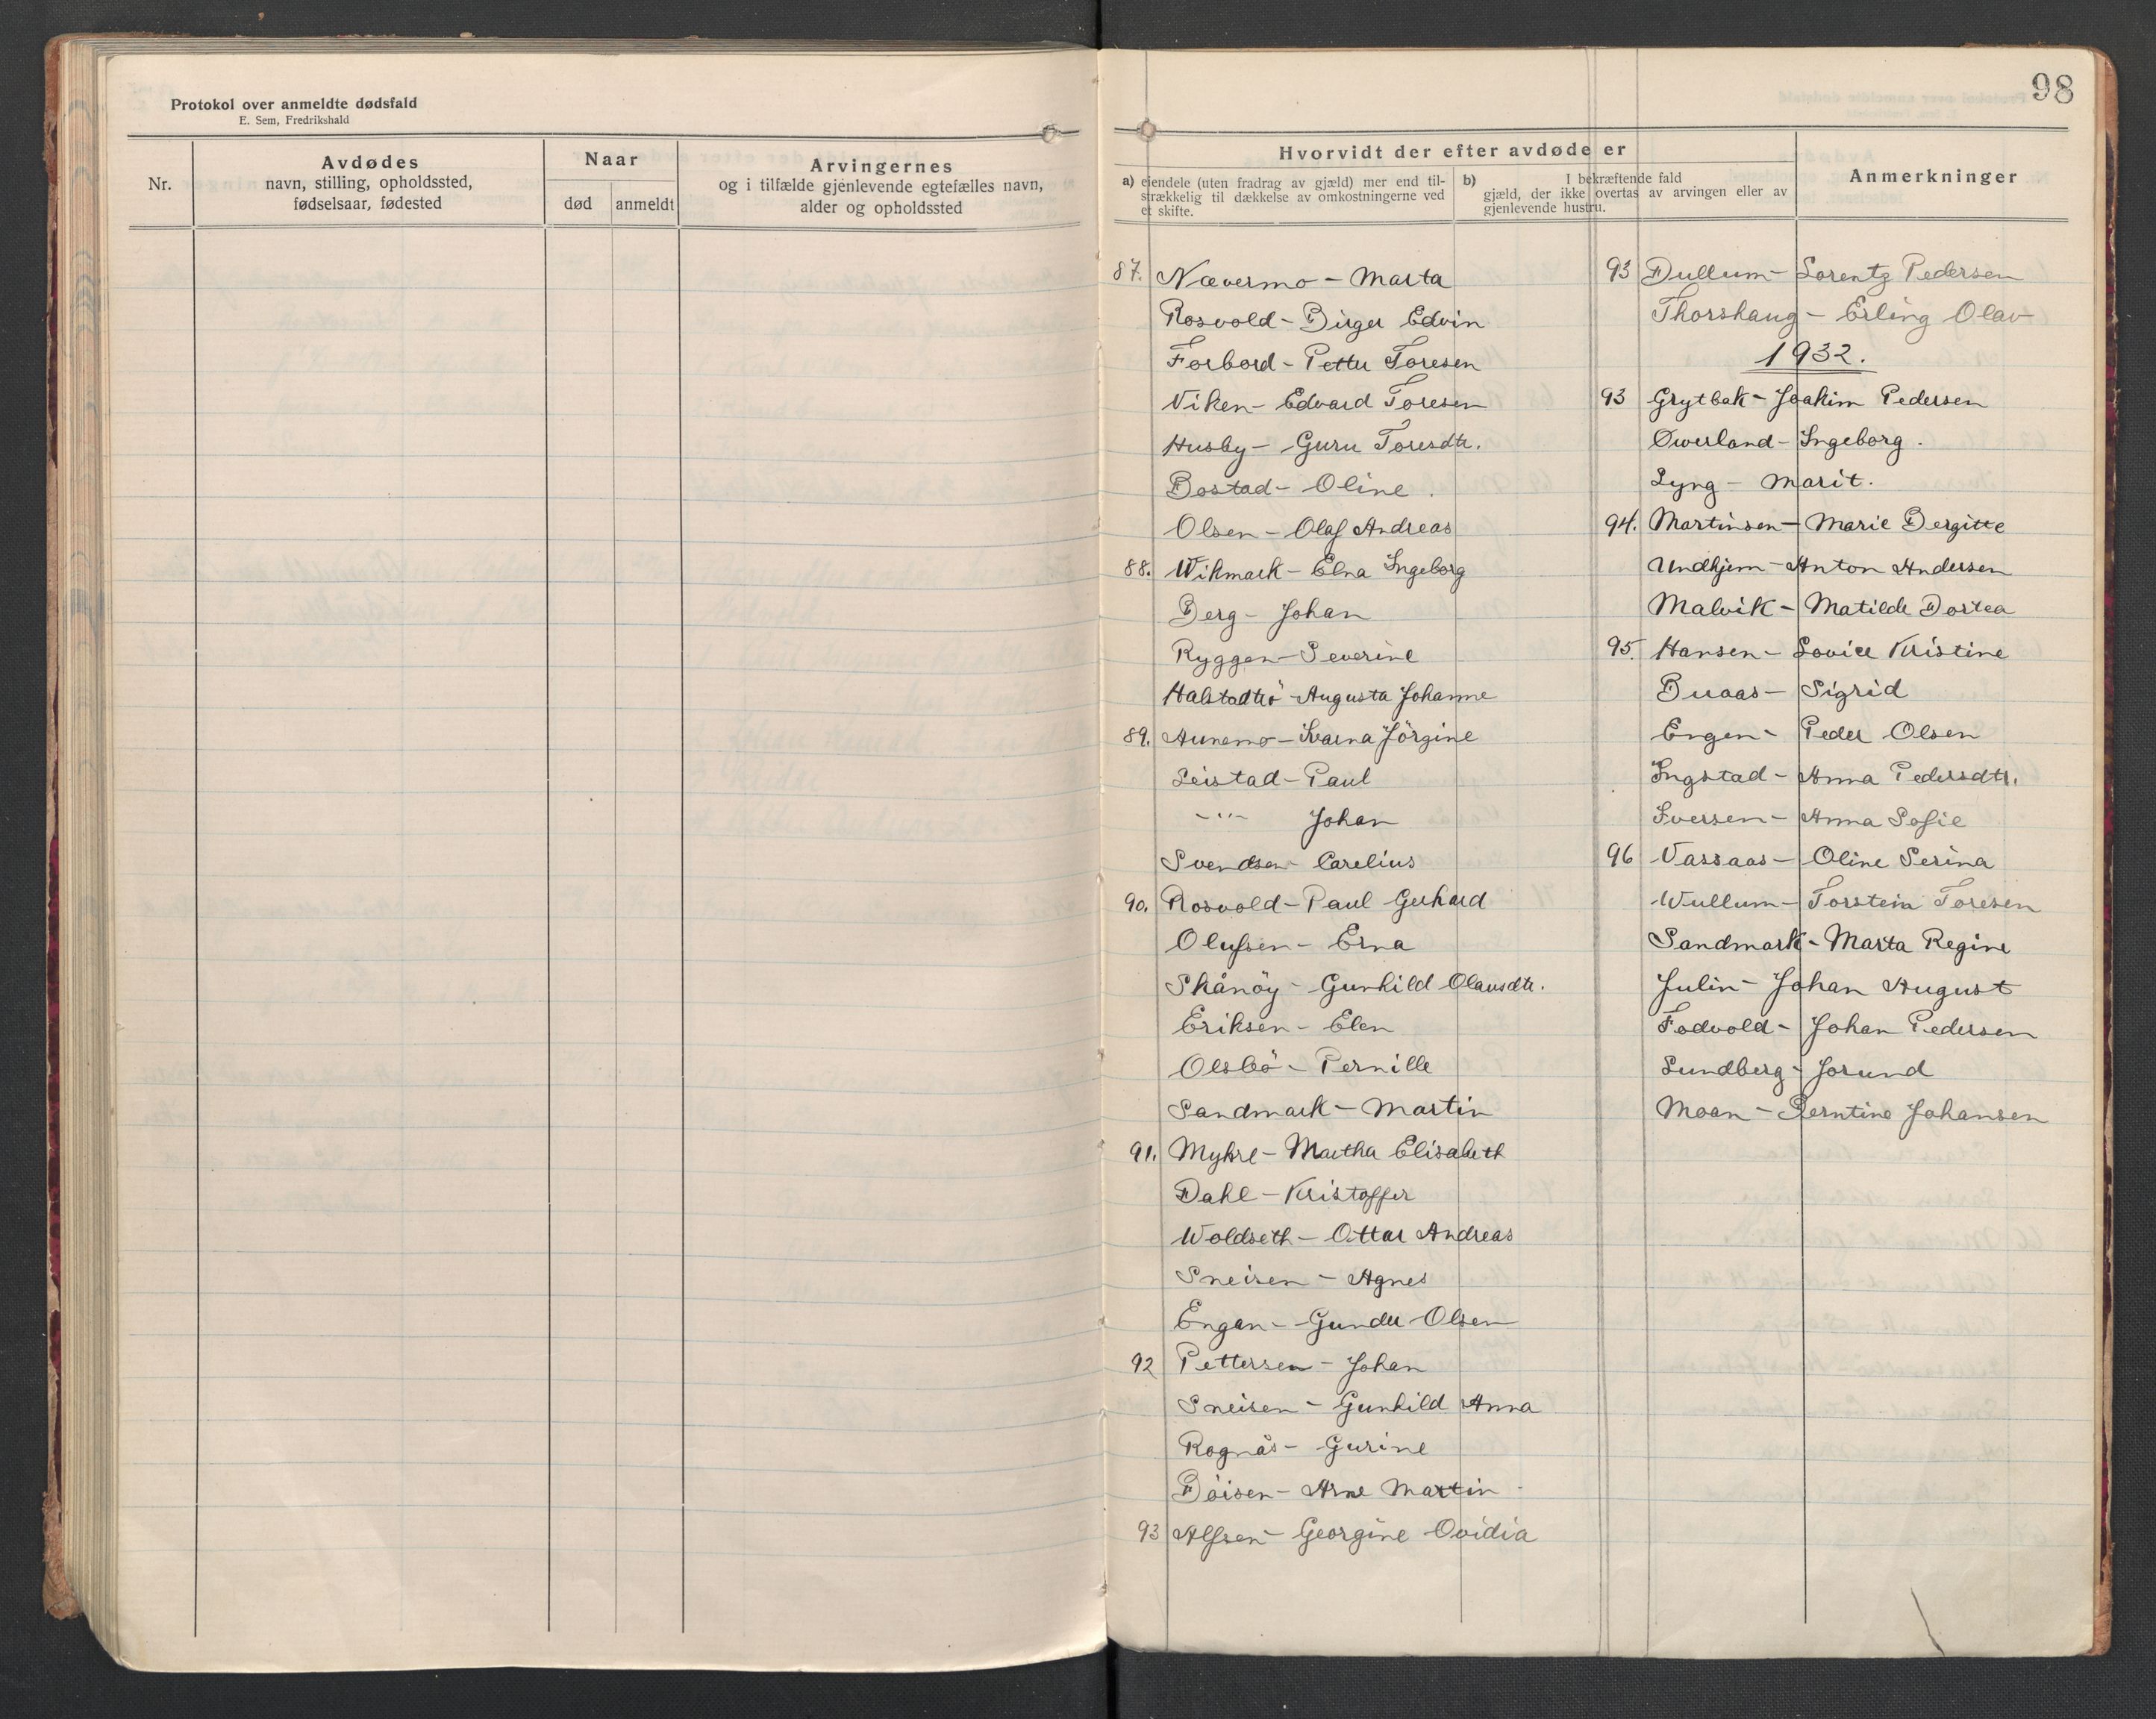 Protokol over anmeldte dødsfald
E. Sem, Fredrikshald
Nr.
Avdødes
navn, stilling, opholdssted,
fødselsaar, fødested
Naar
død
anmeldt
Arvingernes
og i tilfælde gjenlevende egtefælles navn,
alder og opholdssted
98
Hvorvidt der efter avdøde er
a) eiendele (uten fradrag av gjæld) mer end til-
strækkelig til dækkelse av omkostningerne ved
et skifte.
b) I bekræftende fald
gjæld, der ikke overtas av arvingen eller av
gjenlevende hustru.
Anmerkninger
87. Nævermo - Marta
Rosvold - Birger Edvin
Forbord - Petter Toresen
Viken - Edvard Toresen
Husby - Guru Toresdtr.
Bostad - Oline.
Olsen - Olaf Andreas
88. Wikmark - Elna Ingeborg
Berg - Johan
Ryggen - Severine
Halstadtrö - Augusta Johanne
89. Aunemo - Ivarna Jörgine
Leistad - Paul
-"- Johan
Svendsen - Carelius
90. Rosvold - Paul Gerhard
Olufsen - Erna
Skånöy - Gunhild Olausdtr.
Eriksen - Elen
Olsbö - Pernille
Sandmark - Martin
91. Myhre - Martha Elisabeth
Dahl - Kristoffer
Woldseth - Ottar Andreas
Sneisen - Agnes
Engan - Gunder Olsen
92 Pettersen - Johan
Sneisen - Gunhild Anna
Rognås - Gurine
Böisen - Arne Martin
93 Alfsen - Georgine Ovidia
93 Dullum - Lorentz Pedersen
Thorshaug - Erling Olav
1932.
93 Grytbak - Joakim Pedersen
Owerland - Ingeborg.
Lyng - Marit.
94. Martinsen - Marie Bergitte
Undhjem - Anton Andersen
Malvik - Matilde Dortea
95. Hansen - Lovise Kristine
Buaas - Sigrid
Engen - Peder Olsen
Ingstad - Anna Pedersdtr.
Iversen - Anna Sofie
96 Vassaas - Oline Serina
Wullum - Torstein Toresen
Sandmark - Marta Regine
Julin - Johan August
Fodvold - Johan Pedersen
Lundberg - Jorund
Moan - Berntine Johansen